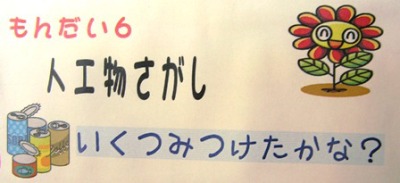 もんだい6
人工物さがし
いくつみつけたかな？